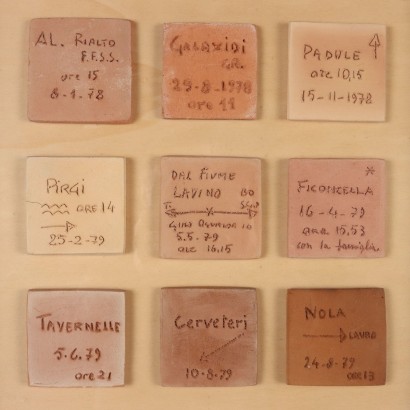 AL. RIALTO
F.F.S.S.
ore 15
8-1-78
GALAXIDI
GR.
29-8-1978
ore 11
PADULE
ore 10,15
15-11-1978
PIRGI
ORE 14
25-2-79
DAL FIUME
LAVINO BO
5.5-79
ore 16.15
FICONCELLA
16-4-79
ore 15,53
con la famiglia
TAVERNELLE
5.6.79
ore 21
Cerveteri
10-8-79
NOLA
LAURO
24-8-79
ORE 13